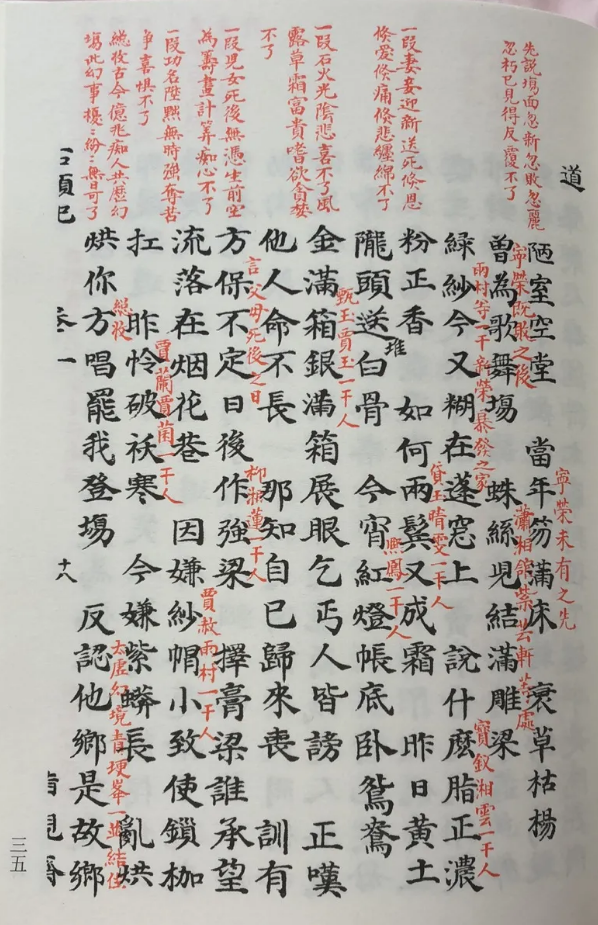 先說塲面忽新忽敗忽麗
忽朽已見得反覆不了
一段妻妾迎新送死倏恩
倏愛倏痛倏悲纏綿不了
一段石火光陰悲喜不了風
露草霜富貴嗜欲貪婪
不了
一段兒女死後無憑生前空
為籌畫計算痴心不了
一段功名陞黜無時強奪苦
爭喜懼不了
總收古今億兆痴人共歷幻
塲此幻事擾ミ紛ミ無日可了
道
陋室空堂 當年笏滿床 衰草枯楊
寧榮既敗之後
寧榮未有之先
曾為歌舞塲 蛛絲兒結滿雕梁
瀟湘館紫芸軒等處
綠紗今又糊在蓬窓上 說什麽脂正濃
雨村等一干新榮暴發之家
寶釵湘雲一干人
粉正香 如何兩鬢又成霜 昨日黃土
堆
黛玉晴雯一干人
隴頭送白骨 今宵紅燈帳底卧鴛鴦
熙鳳一干人
金滿箱銀滿箱展眼乞丐人皆謗 正嘆
甄玉賈玉一干人
他人命不長 那知自已歸來喪 訓有
方保不定日後作強梁 擇膏梁誰承望
言父母死後之日
柳湘蓮一干人
流落在烟花巷 因嫌紗帽小致使鎖枷
賈赦雨村一干人
扛 昨怜破袄寒 今嫌紫蟒長 亂烘
賈蘭賈菌一干人
烘你方唱罷我登塲 反認他鄉是故鄉
總收
太虛幻境青埂峯一並結住
卷一
十八
三五